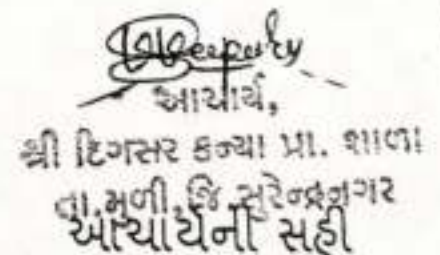 આચાર્ય,
શ્રી દિગસર કન્યા પ્રા. શાળા
તા.મુળી,જિ સુરેન્દ્રનગર
આચાર્યની સહી